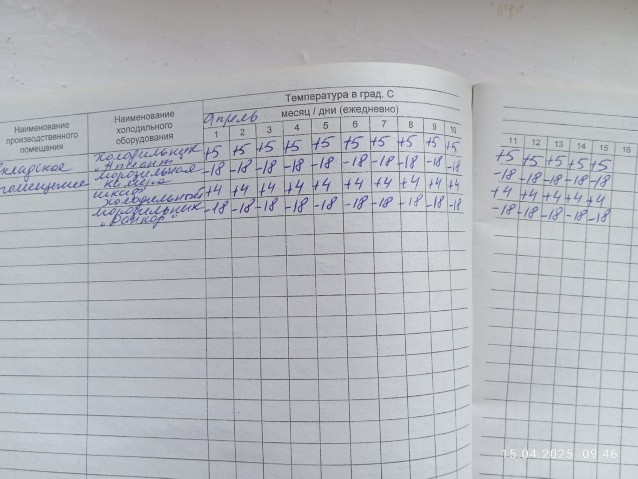 Температура в град. С
Наименование производственного помещения
Наименование холодильного оборудования
Апрель месяц / дни (ежедневно)
1 2 3 4 5 6 7 8 9 10 11 12 13 14 15 16
Складское помещение
холодильник "Атлант" +5 +5 +5 +5 +5 +5 +5 +5 +5 +5 +5 +5 +5 +5 +5
морозильная камера -18 -18 -18 -18 -18 -18 -18 -18 -18 -18 -18 -18 -18 -18 -18
шкаф холодильный +4 +4 +4 +4 +4 +4 +4 +4 +4 +4 +4 +4 +4 +4 +4
морозильник -18 -18 -18 -18 -18 -18 -18 -18 -18 -18 -18 -18 -18 -18 -18
15.04.2025 09:46